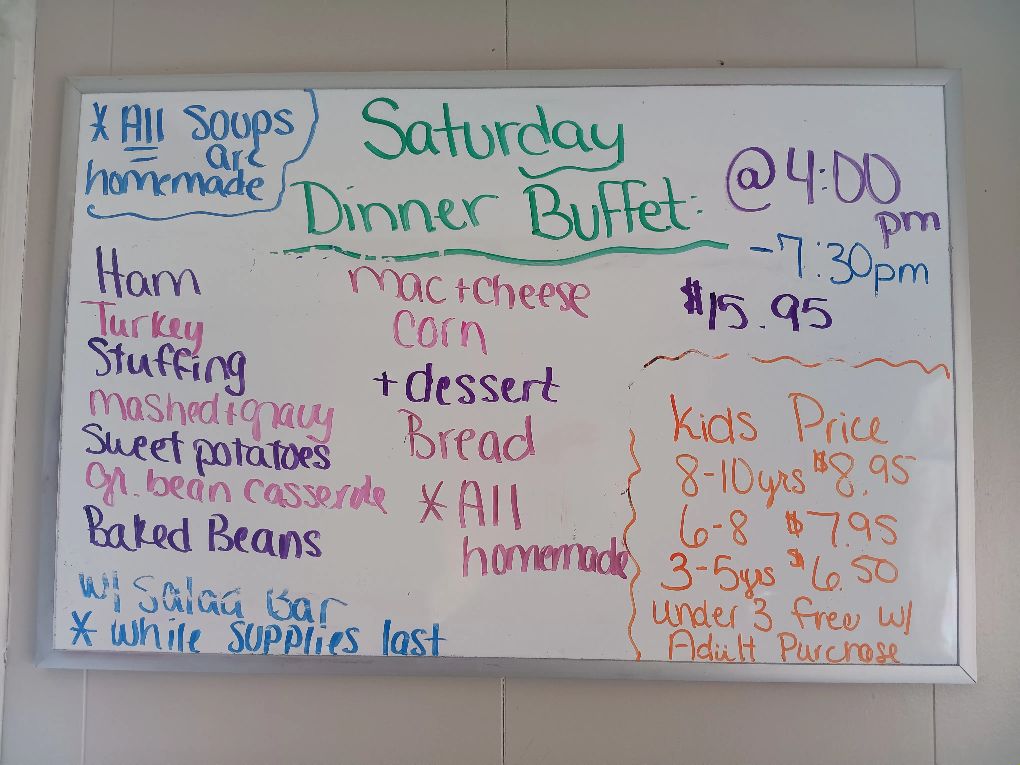 * All Soups
are
homemade
Saturday
Dinner Buffet:
@4:00
pm
-7:30pm
$15.95
Ham
Turkey
Stuffing
mashed+gravy
Sweet potatoes
Gr. bean casserole
Baked Beans
w/ Salad Bar
* while supplies last
mac+cheese
corn
+dessert
Bread
* All
homemade
Kids Price
8-10yrs $8.95
6-8 $7.95
3-5yrs $6.50
under 3 free w/
Adult Purchase